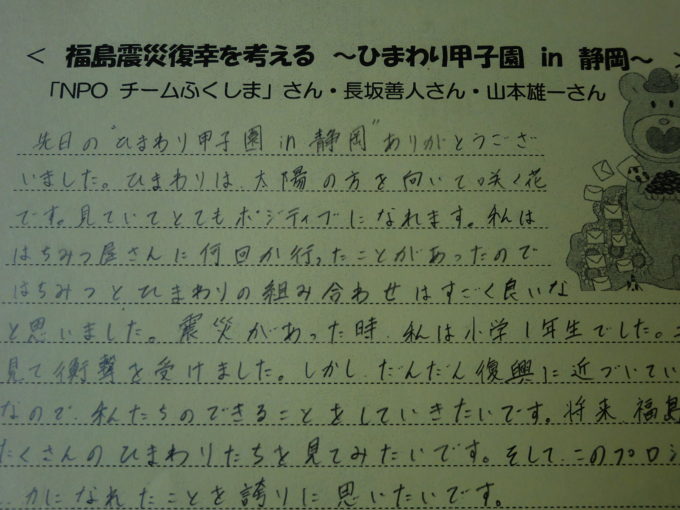 < 福島震災復幸を考える ～ひまわり甲子園 in 静岡～ >
「NPO チームふくしま」さん・長坂善人さん・山本雄一さん
先日の"ひまわり甲子園in静岡"ありがとうござ
いました。ひまわりは、太陽の方を向いて咲く花
です。見ていてとてもポジティブになれます。私は
はちみつ屋さんに何回か行ったことがあったので
はちみつとひまわりの組み合わせはすごく良いな
と思いました。震災があった時、私は小学1年生でした。
見て衝撃を受けました。しかし、だんだん復興に近づいてい
なので、私たちのできることをしていきたいです。将来、福島
たくさんのひまわりたちを見てみたいです。そして、このプロジ
かになれたことを誇りに思いたいです。